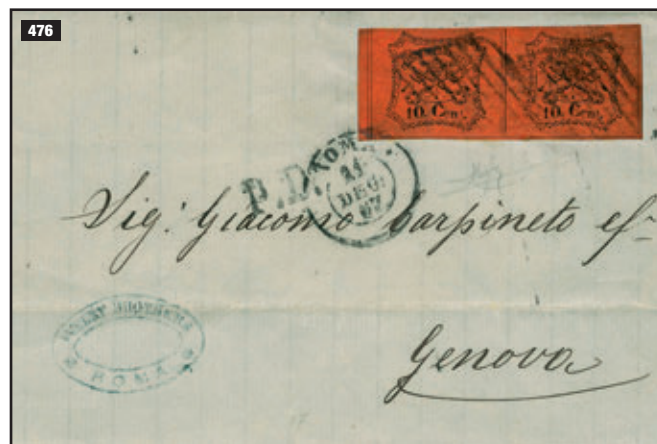 476
10. Cent. 10. Cent.
P.D.
ROMA
21
DEC.
67
Sig.r Giacomo Carpineto
Genova
BROTHERS
ROMA